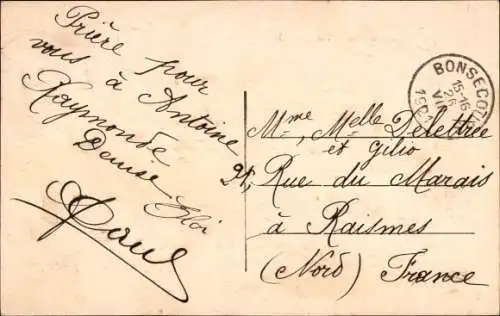 Prière pour
vous à Antoine
Raymonde
Denise Eloi
Paul
BONSECOU
15-16
26
VII
Mme, Melle Delettrée
et Gilio
21, Rue du Marais
à Raismes
(Nord) France